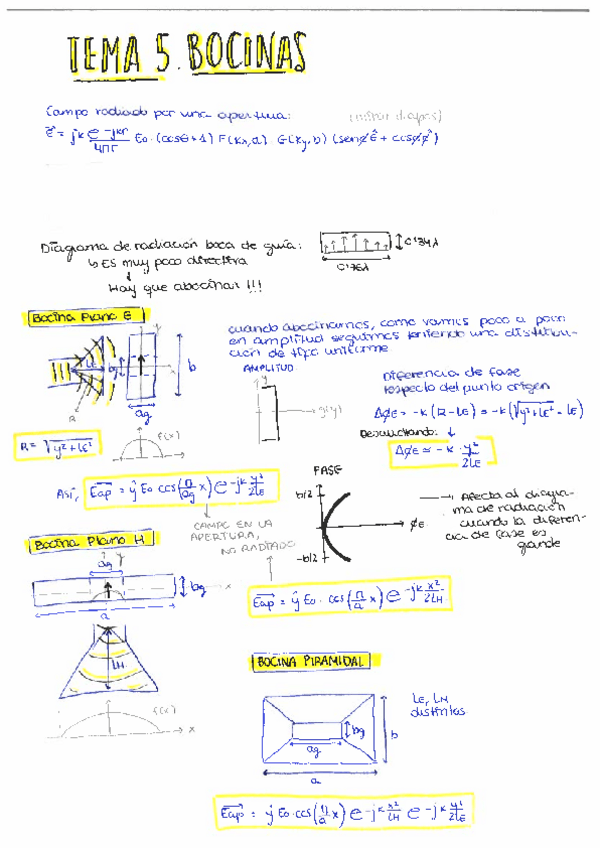 TEMA 5. BOCINAS
Campo radiado por una apertura:
E = jk e^-jkr / 4πr E0 · (cosθ+1) F(kx,a) G(ky,b) (senφ θ̂ + cosφ φ̂)
Diagrama de radiación boca de guía:
0'34λ
0'76λ
↳ Es muy poco directiva
↓
Hay que abocinar !!!
Bocina Plano E
cuando abocinamos, como vamos poco a poco
en amplitud seguimos teniendo una distribu-
ción de tipo uniforme
y
x
LE
bg
b
R
ag
AMPLITUD
y
g(y)
Diferencia de fase
respecto del punto origen
ΔφE = -k (R - LE) = -k (√y²+LE² - LE)
↓
ΔφE ≈ -k · y²/2LE
R = √y²+LE²
f(x)
Así, Eap = ŷ E0 cos(π/ag x) e^-jk y²/2LE
CAMPO EN LA
APERTURA,
NO RADIADO
FASE
b/2
-b/2
φE
→ Afecta al diagra-
ma de radiación
cuando la diferen-
cia de fase es
grande
Bocina Plano H
ag
y
bg
x
a
LH
f(x)
x
Eap = ŷ E0 · cos(π/a x) e^-jk x²/2LH
BOCINA PIRAMIDAL
bg
b
ag
a
LE, LH
distintos
Eap = ŷ E0 · cos(π/a x) e^-jk x²/LH e^-jk y²/2LE